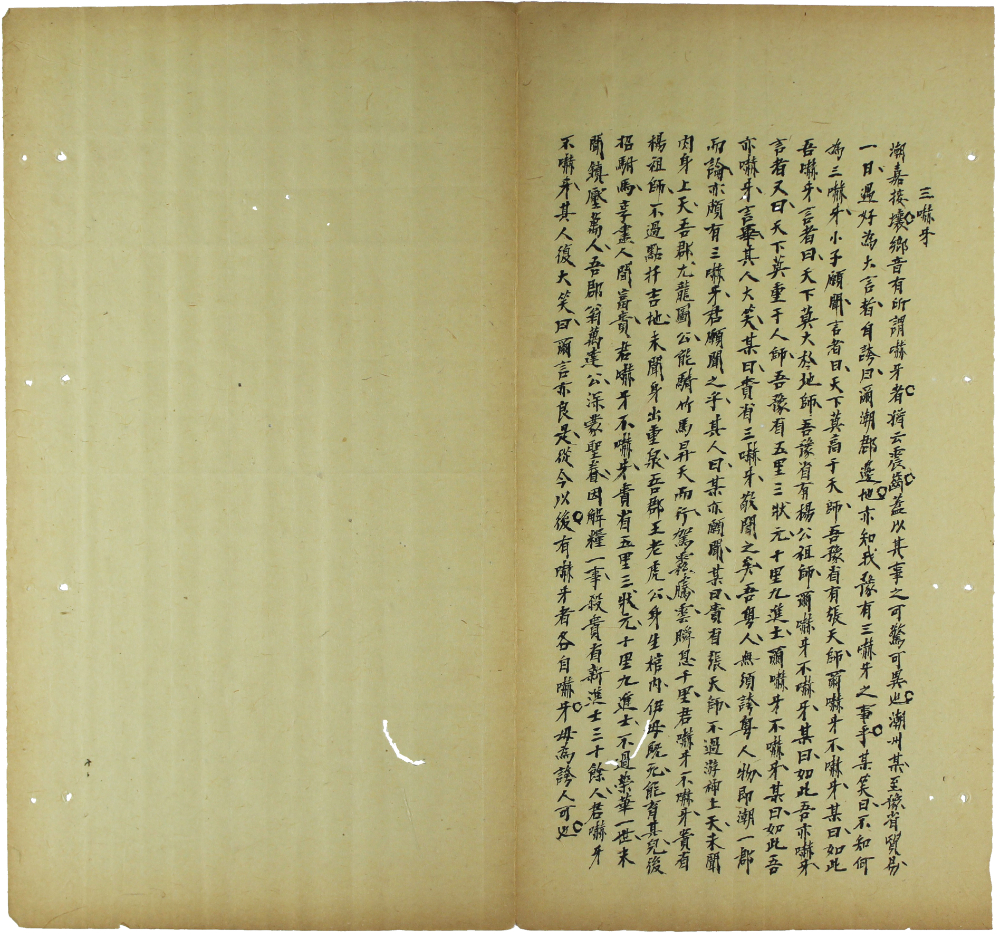 三嚇牙
潮嘉接壤鄉音有所謂嚇牙者猶云震齒蓋以其事之可驚可異也潮州某至豫省貿易
一日遇好為大言者自誇曰爾潮郡邊地亦知我豫有三嚇牙之事乎某笑曰不知何
為三嚇牙小子願聞言者曰天下莫高于天師吾豫省有張天師爾嚇牙不嚇牙某曰如此
吾嚇牙言者曰天下莫大於地師吾豫省有楊公祖師爾嚇牙不嚇牙某曰如此吾亦嚇牙
言者又曰天下莫重于人師吾豫有五里三狀元十里九進士爾嚇牙不嚇牙某曰如此吾
亦嚇牙言畢其人大笑某曰貴省三嚇牙敬聞之矣吾粵人無須誇粵人物即潮一郡
而論亦頗有三嚇牙君願聞之乎其人曰某亦願聞某曰貴省張天師不過游神上天未聞
肉身上天吾郡九龍圖公能騎竹馬昇天而行駕霧騰雲瞬息千里君嚇牙不嚇牙貴省
楊祖師不過點扦吉地未聞身出重泉吾郡王老虎公身生棺內伊母既死能育其兒後
招駙馬享盡人間富貴君嚇牙不嚇牙貴省五里三狀元十里九進士不過榮華一世未
聞鎮壓萬人吾郡翁萬達公深蒙聖眷因解糧一事殺貴省新進士三十餘人君嚇牙
不嚇牙其人復大笑曰爾言亦良是從今以後有嚇牙者各自嚇牙毋為誇人可也